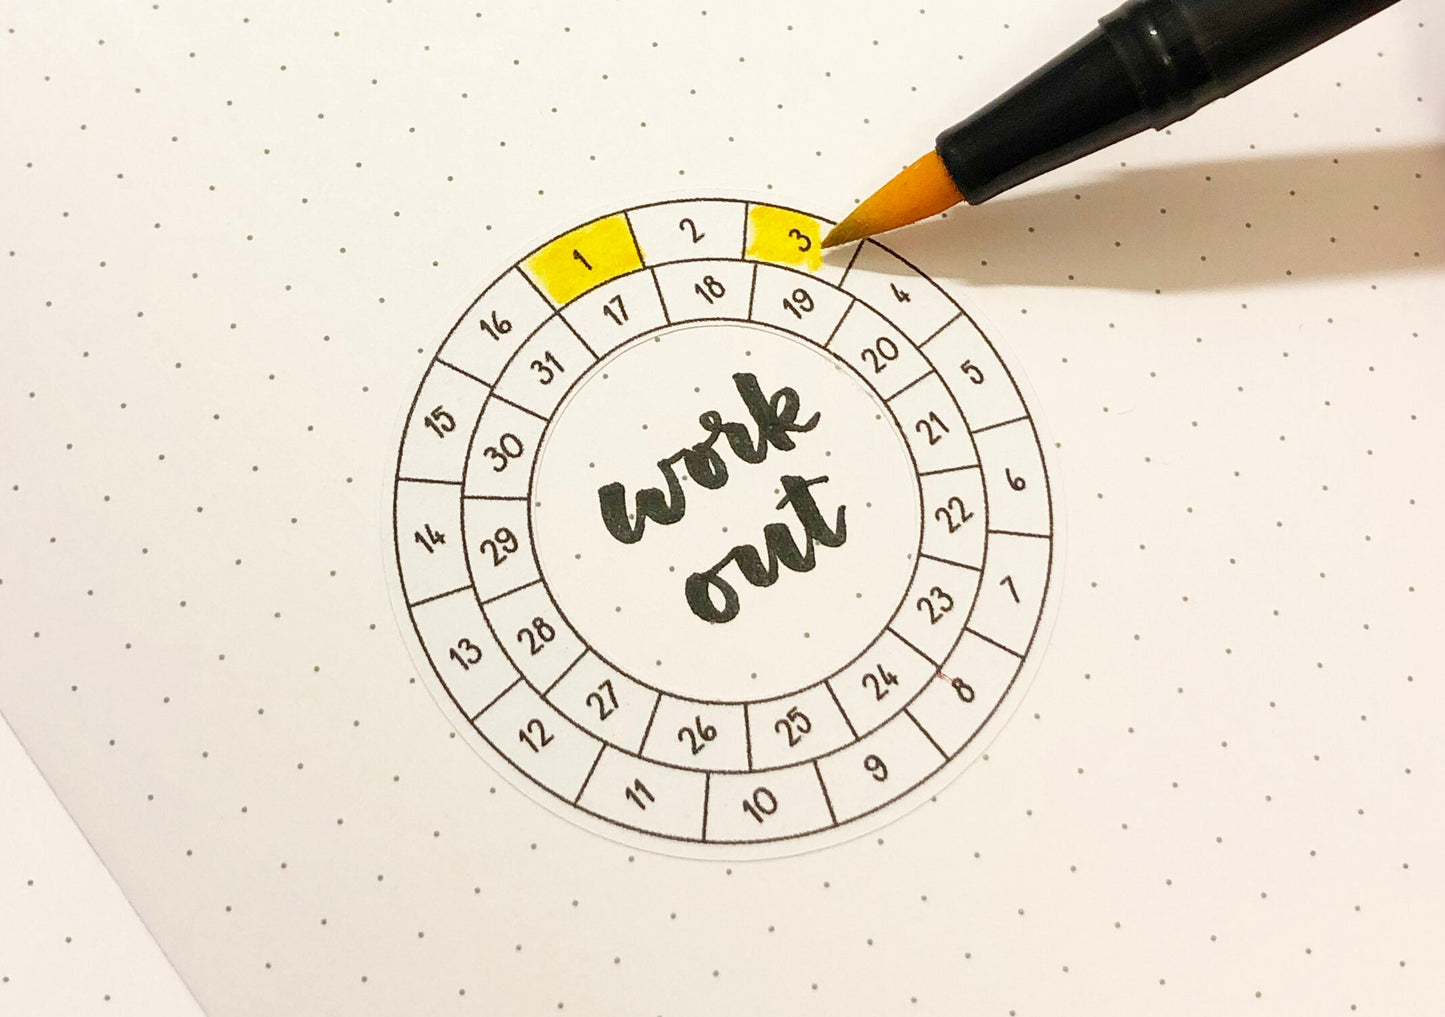 1 2 3 4 5 6 7 8 9 10 11 12 13 14 15 16
17 18 19 20 21 22 23 24 25 26 27 28 29 30 31
work
out